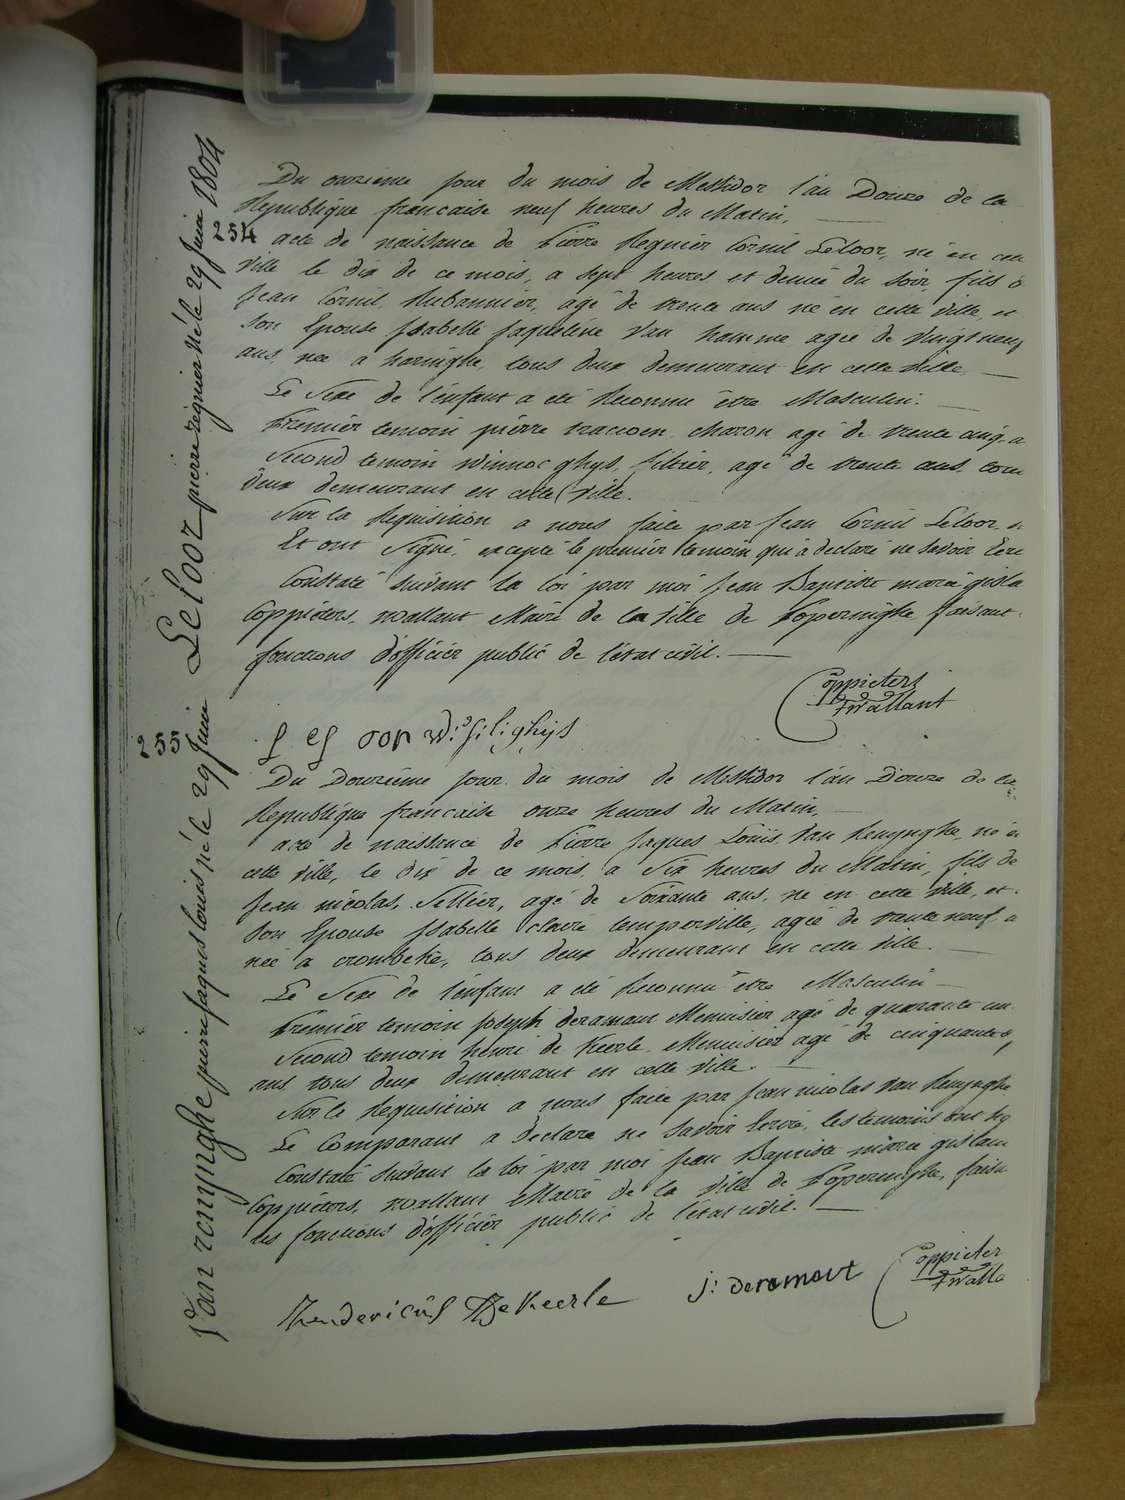 Leloor pierre regnier né le 29 Juin 1804
254
Du onzième jour du mois de Messidor l'an Douze de la
Republique francaise neuf heures du Matin,
acte de naissance de Pierre Regnier Cornil Leloor, né en cett
ville le dix de ce mois, a sept heures et demie du soir, fils d
Jean Cornil, Rubannier, agé de trente ans né en cette ville, et
son Epouse Isabelle Jaqueline Van hamme agée de vingt neuf
ans, née a haringhe, tous deux demeurant en cette ville,
Le Sexe de l'enfant a été Reconnu être Masculin.
Premier temoin pierre charon agé de trente cinq a
Second temoin Winnoc ghys, filtier, agé de trente ans, tous
deux demeurant en cette ville.
Sur la Requisition a nous faite par Jean Cornil Leloor
Et ont Signé, excepté le premier temoin qui a declaré ne savoir Ecri
Constaté suivant la loi par moi Jean Baptiste marie gisla
Coppieters, wallant Maire de la ville de Poperinghe faisant
fonctions d'officier public de l'etat civil.
Coppieters
twallant
Van renynghe pierre jaques louis né le 29 Juin
255
Du Douzième jour du mois de Messidor l'an Douze de la
Republique francaise onze heures du Matin,
acte de naissance de Pierre Jaques Louis Van Renynghe, né e
cette ville, le dix de ce mois, a Six heures du Matin, fils de
Jean nicolas, Sellier, agé de Soixante ans, né en cette ville, et
Son Epouse Isabelle claire temperville, agée de trente neuf a
née a crombeke, tous deux demeurant en cette ville.
Le Sexe de l'enfant a été Reconnu être Masculin
Premier temoin Joseph deramaut Menuisier agé de quarante un
Second temoin henri de Keerle, Menuisier agé de cinquante
ans tous deux demeurant en cette ville.
Sur la Requisition a nous faite par Jean nicolas Van Renynghe
Le Comparant a declaré ne savoir Ecrire, les temoins ont sig
Constaté Suivant la loi par moi Jean Baptiste marie gislain
Coppieters, wallant Maire de la ville de Poperinghe, faisa
les fonctions d'officier public de l'etat civil.
Coppieter
twalla
Hendericus De Keerle j: deramout